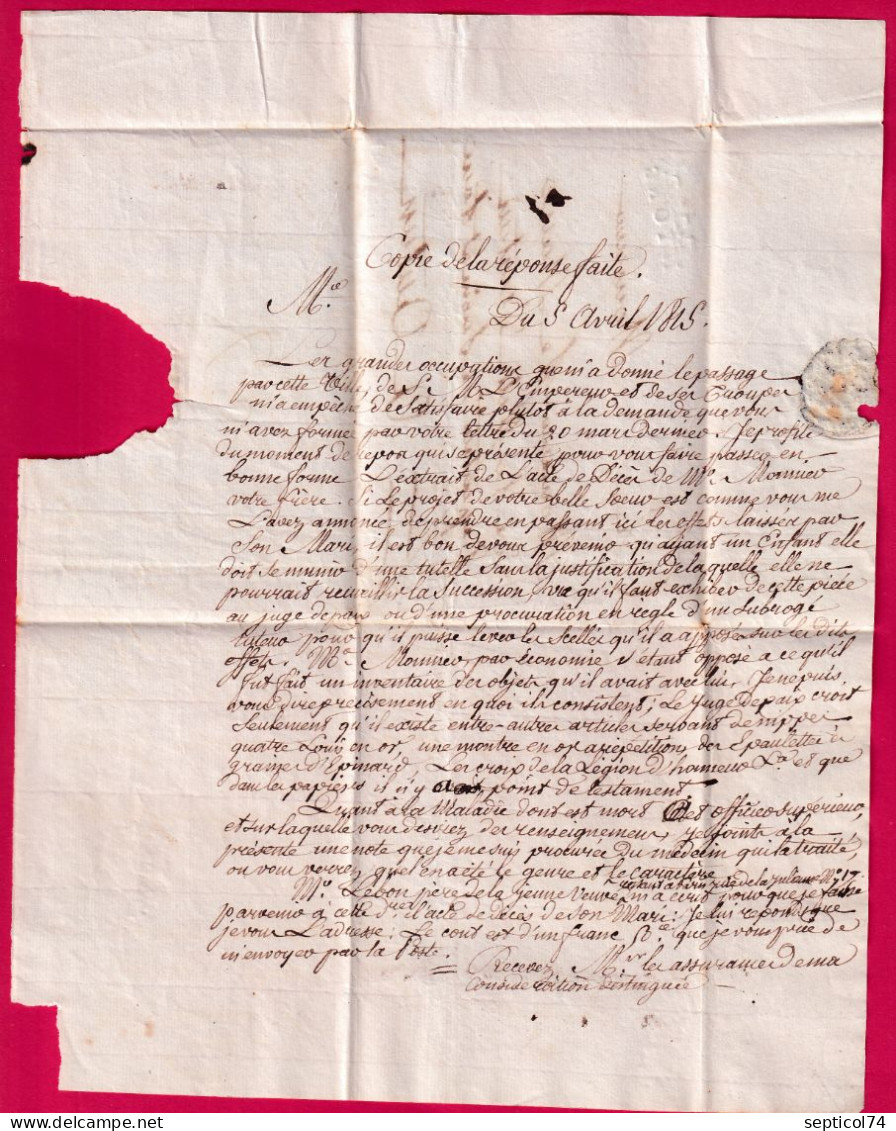 Copie de la réponse faite.
Du 5 Avril 1815.
Les grandes occupations que m'a donné le passage
par cette Ville, de S. M. L'Empereur et de ses Troupes
m'a empêché de satisfaire plutot à la demande que vous
m'avez formée par votre lettre du 20 mars dernier. Je profite
du moment de repos qui se présente pour vous faire passer en
bonne forme L'extrait de L'acte de Décès de Mr. Monnier
votre frère. Si Le projet de votre belle Soeur est comme vous me
L'avez annoncé, de prendre en passant ici les effets laissés par
Son Mari, il est bon de vous prévenir qu'ayant un Enfant elle
doit se munir d'une tutelle sans la justification de laquelle elle ne
pourrait recueillir la Succession, vu qu'il faut exhiber de cette pièce
au juge de paix ou d'une procuration en règle d'un Subrogé
tuteur pour qu'il puisse lever les Scellés qu'il a apposés sur les dits
effets. Mr. Monnier, par économie s'étant opposé a ce qu'il
fut fait un inventaire des objets qu'il avait avec lui, Je ne puis
vous dire précisément en quoi ils consistent; Le Juge de paix croit
Seulement qu'il existe entre-autres articles servant de nippes
quatre Louis en or, une montre en or a répétition, des Epaulettes à
graines d'Epinard, Les croix de la Légion d'honneur &a et que
dans les papiers il n'y point de testament.
Quant à la Maladie dont est mort Cet officier supérieur,
et sur laquelle vous desirez des renseignemens, Je joins à la
présente une note que je me suis procurée du médecin qui l'a traité,
ou vous verrez quel en a été le genre et le caractère
Mr. Lebon père de la jeune veuve m'a écrit pour que je fasse
parvenir à cette dre. L'acte de décès de Son Mari: Je lui reponds que
je vous L'adresse: Le cout est d'un franc que je vous prie de
m'envoyer par la Poste.
Recevez, Mr. les assurances de ma
Considération distinguée
septicol74
delcampe.net